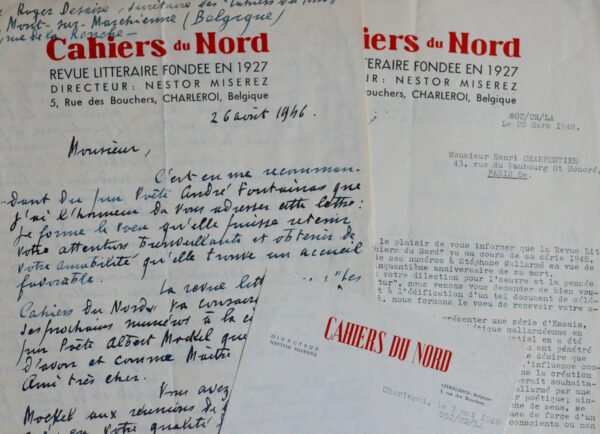 Roger Desaise, Secrétaire des "Cahiers du Nord"
Mont-sur-Marchienne (Belgique)
rue de la Ronche
Cahiers du Nord
REVUE LITTERAIRE FONDEE EN 1927
DIRECTEUR: NESTOR MISEREZ
5, Rue des Bouchers, CHARLEROI, Belgique
26 août 1946.
Monsieur,
C'est en me recomman-
dant du pur Poète André Fontainas que
j'ai l'honneur de vous adresser cette lettre:
Je forme le voeu qu'elle puisse retenir
votre attention bienveillante et obtenir de
votre amabilité qu'elle trouve un accueil
favorable.
La revue litt
Cahiers du Nord va consacrer
ses prochains numéros à la
pur Poète Albert Mockel que
d'avoir eu comme Maître
Ami très cher.
Vous avez
Mockel aux réunions de
en votre qualité
iers du Nord
TERAIRE FONDEE EN 1927
EUR: NESTOR MISEREZ
Bouchers, CHARLEROI, Belgique
802/CN/LA
Le 20 Mars 1948.
Monsieur Henri CHARPENTIER
43, rue du Faubourg St Honoré,
PARIS 8e.
le plaisir de vous informer que la Revue Lit
hiers du Nord" va au cours de sa série 1948,
de ses numéros à Stéphane Mallarmé en vue de
nquantième anniversaire de sa mort.
votre dilection pour l'oeuvre et la pensée
tur", nous vous demander de bien vou-
t à l'édification d'un tel document de célé-
, nous formons le voeu de recevoir votre a
présenter une série d'Essais,
étique mallarméenne en
entiel en a été
ont pénétré
ce désire que
l'influence con
la création
erait souhaita-
llarmé par une
poétique; ain-
he de sens, se
nes de force d'un
consciente ou non
CAHIERS DU NORD
DIRECTEUR
NESTOR MISEREZ
CHARLEROI, Belgique
5, rue des Bouchers
Charleroi, le 7 mai 1948
802/CN/LA